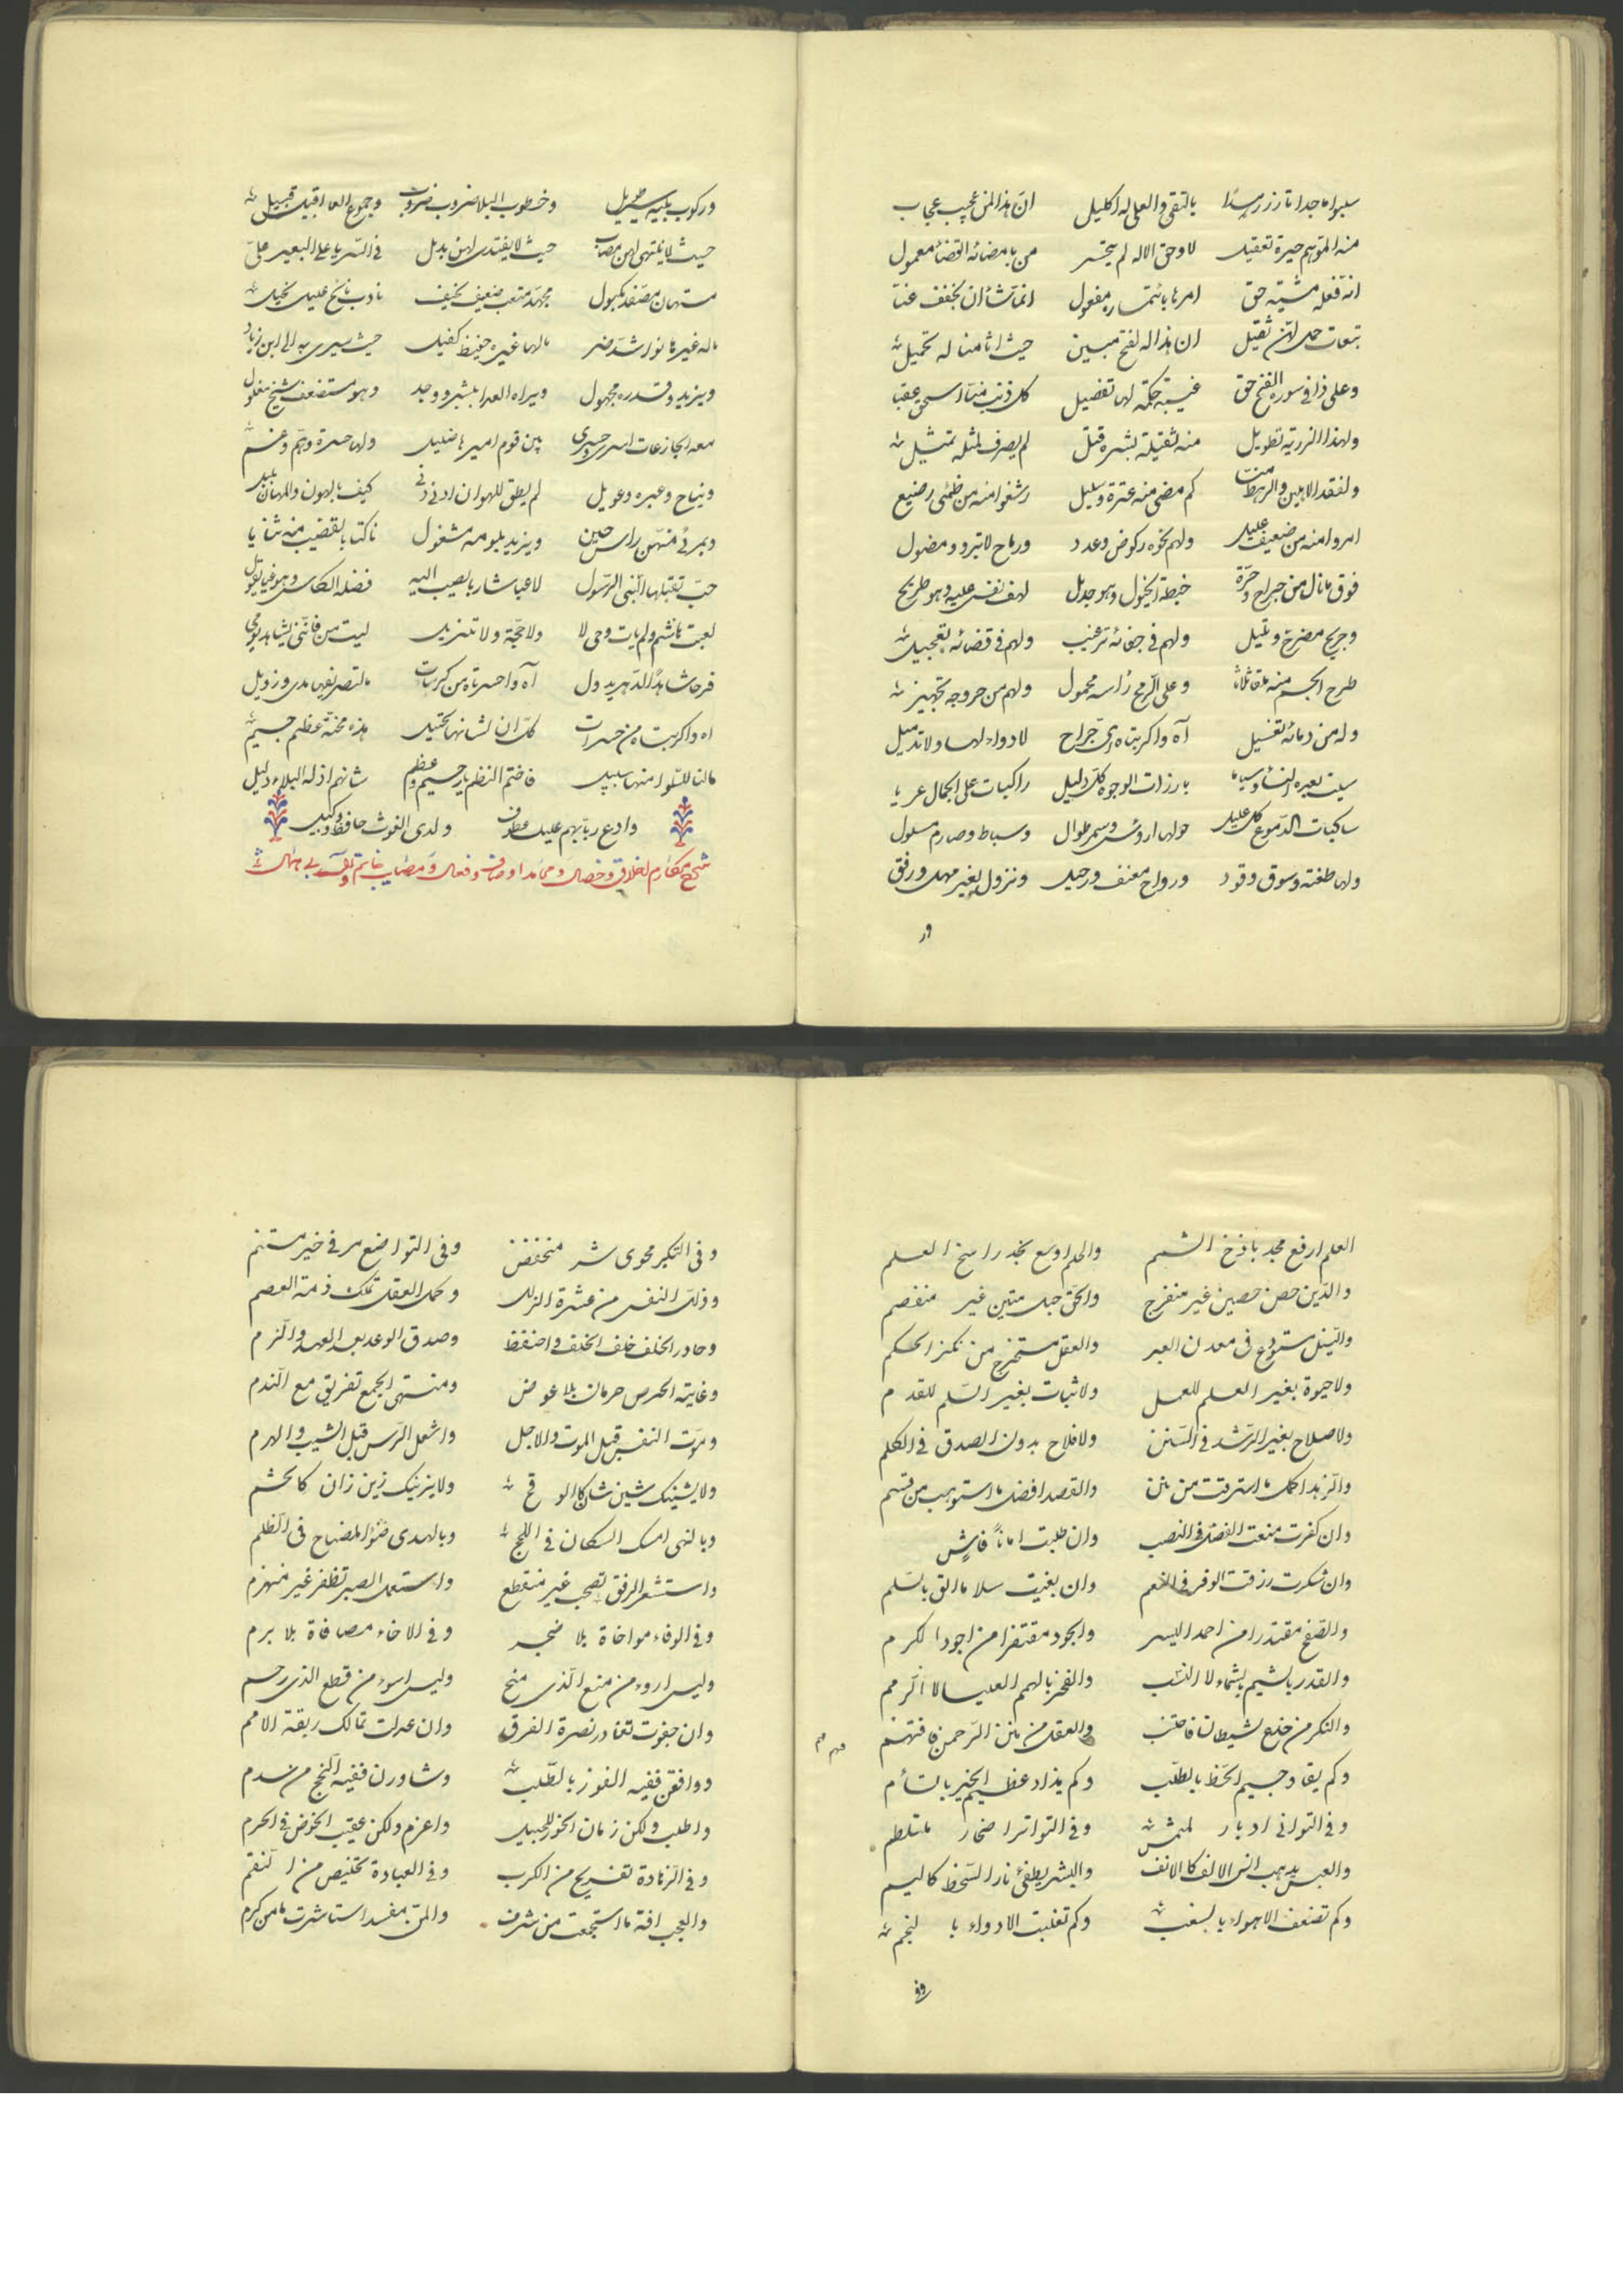 سلبوا ماجدا تازر رشدا بالتقى والعلى له اكليل ان هذا لمن عجيب عجاب
منه المتوهم حيرة تعقيل لا وحق الاله لم يجسر من بامضائه القضاء معمول
انه فعله مشيته حق امرنا بائتماره مفعول انما شاء ان يخفف عنا
تبعات حملهن ثقيل ان هذا له لفتح مبين حيث اثامنا له تحميل
وعلى ذا فى سورة الفتح حق غيبة حكمة لها تفضيل كل ذنب منا
ولهذا الزرية تطويل منه لم يصرف لمثله تمثيل
ولفقد الابين والرهط كم مضى منه عترة وسليل رشفوا منه من ظمئ رضيع
امروا منه من ضعيف عليل ولهم نحوه ركوض وعدد ورماح لا تبرد ومضول
فوق ما نال من جراح وحرة خبطة الخيول وهو جديل لهف نفسى عليه وهو طريح
وجريح مضرج وتليل ولهم فى جفائه ترغيب ولهم فى قضائه تعجيل
طرح الجسم منه ملقا ثلاثا وعلى الرمح رأسه محمول ولهم من خروجه تجهيز
وله من دمائه تغسيل آه واكربتاه اى جراح لا دواء لها ولا تدميل
سلبت بعيره النساء وسبايا بارزات الوجوه كل دليل راكبات على الجمال عرايا
ساكبات الدموع كل عليل حولها ارؤس وسمر طوال وسياط وصارم مسلول
ولها طغته وسوق وقود ورواح معنف ورحيل ونزول بغير مهل ورفق
ور
وركوب يليه سير طويل وخطوب البلا ضروب ضروب وجموع العدا قبيل قبيل
حيث لا ينتهى لهن مصاب حيث لا يفتدى لهن بديل فى السرايا على البعير على
مستهان مصفد مكبول مجهد متعب ضعيف نحيف نادب نائح عليل نحيل
ماله غيرها نوا شد ضر مالها غيره حفيظ كفيل حيث يسرى به الى ابن زياد
ويزيد وقدره مجهول ويراه العدا بشبر ووجد وهو مستضعف شيخ مغلول
معه الجازعات اسرى حسرى بين قوم اميرها ضليل ولها حسرة وهم وغم
ونياح وعبره وعويل لم يطق للهوان ادنى دنى كيف بالهون والمهان نبيل
وبمرئ منهن راس حسين ويزيد بلومه مشغول ناكتا بالقضيب منه ثنايا
حب تقبيلها النبى الرسول لاعبا شاربا يصب اليه فضلة الكاس وهو فيها يقول
لعبت هاشم ولم يات وحى لا ولا حجة ولا تنزيل ليت من فاتنى يشاهد يومى
فرحا شاهدا لدهر يدول آه واحسرتاه من كربات مالتصريفها مدى وزويل
اه واكربتاه من حسرات كل ان لشانها تحتيل هذه محنة عظم جسيم
مالنا للسلو منها سبيل فاختم النظم يا رحيم وعظم شانهم اذله البلاء دليل
وادع ربا بهم عليك عطوف ولدى الغوث حافظ ووكيل
شرح مكارم اخلاق وخصال ومحامد اوصاف وفعال ومصايب خاتم
العلم ارفع مجد باذخ الشمم والحلم اوسع نجد راسخ العلم
والدين حصن حصين غير منفرج والحق حبل متين غير منفصم
والنبل مستودع فى معدن العبر والعقل مستخرج من مكنز الحكم
ولا حيوة بغير العلم للعمل ولا ثبات بغير السلم للقدم
ولا صلاح بغير الرشد فى السنن ولا فلاح بدون الصدق فى الكلم
والزهد اكمل ما استرقت من منن والقصد افضل ما استوهب من قسم
وان كفرت منعت الفضل فى النصب وان طلبت امانا فارش
وان شكرت رزقت الوفر فى النعم وان بغيت سلاما الق بالسلم
والصفح مقتدرا من احمد اليسر والجود مفتقرا من اجود الكرم
والقدر بالشيم الشماء لا النشب والفخر بالهمم العليا لا الرمم
والنكر من خدع لشيطان فاجتنب والعقل من منن الرحمن فاغتنم
وكم يقاد جسيم الحظ بالطلب وكم يذاد عظيم الخير بالسأم
وفى التوانى ادبار لمنمش وفى التواتر اضحار ملتطم
والعبس يذهب انس الالف كالانف والبشر يطفئ نار السخط كاليم
وكم تضعف الاهواء بالسغب وكم تغلبت الادواء بالنجم
وفى
وفى التكبر مهوى شر منخفض وفى التواضع مرقى خير مستنم
وذلك النفس من عشرة الزلل وكمل العقل تملك ذمة العصم
وحاذر الخلف خلف الخلف واحتفظ وصدق الوعد بعد العهد والتزم
وغاية الحرص حرمان بلا عوض ومنتهى الجمع تفريق مع الندم
وموت النفس قبل الموت والاجل واشعل الرس قبل الشيب والهرم
ولا يشينك شين شان كالوقح ولا يزينك زين زان كالحشم
وبالنهى امسك السكان فى اللجج وبالهدى ضوء المصباح فى الظلم
واستشعر الرفق تصحب غير منقطع واستعمل الصبر تظفر غير منهزم
وفى الوفاء مواخاة بلا ضجر وفى الاخاء مصافاة بلا برم
وليس اروء من منع الذى منح وليس اسوء من قطع الذى رحم
وان جفوت تغادر نصرة الفرق وان عدلت تمالك ربقة الامم
ووافقن ففيه الفوز بالطلب وشاورن ففيه النجح من سدم
واطلب ولكن زمان الخور للجيل واعزم ولكن عقيب الخوض فى الحرم
وفى الزهادة تفريح من الكرب وفى العبادة تخليص من النقم
والعجب افة ما استجمعت من شرف والمن مفسد استاشرت ما من كرم